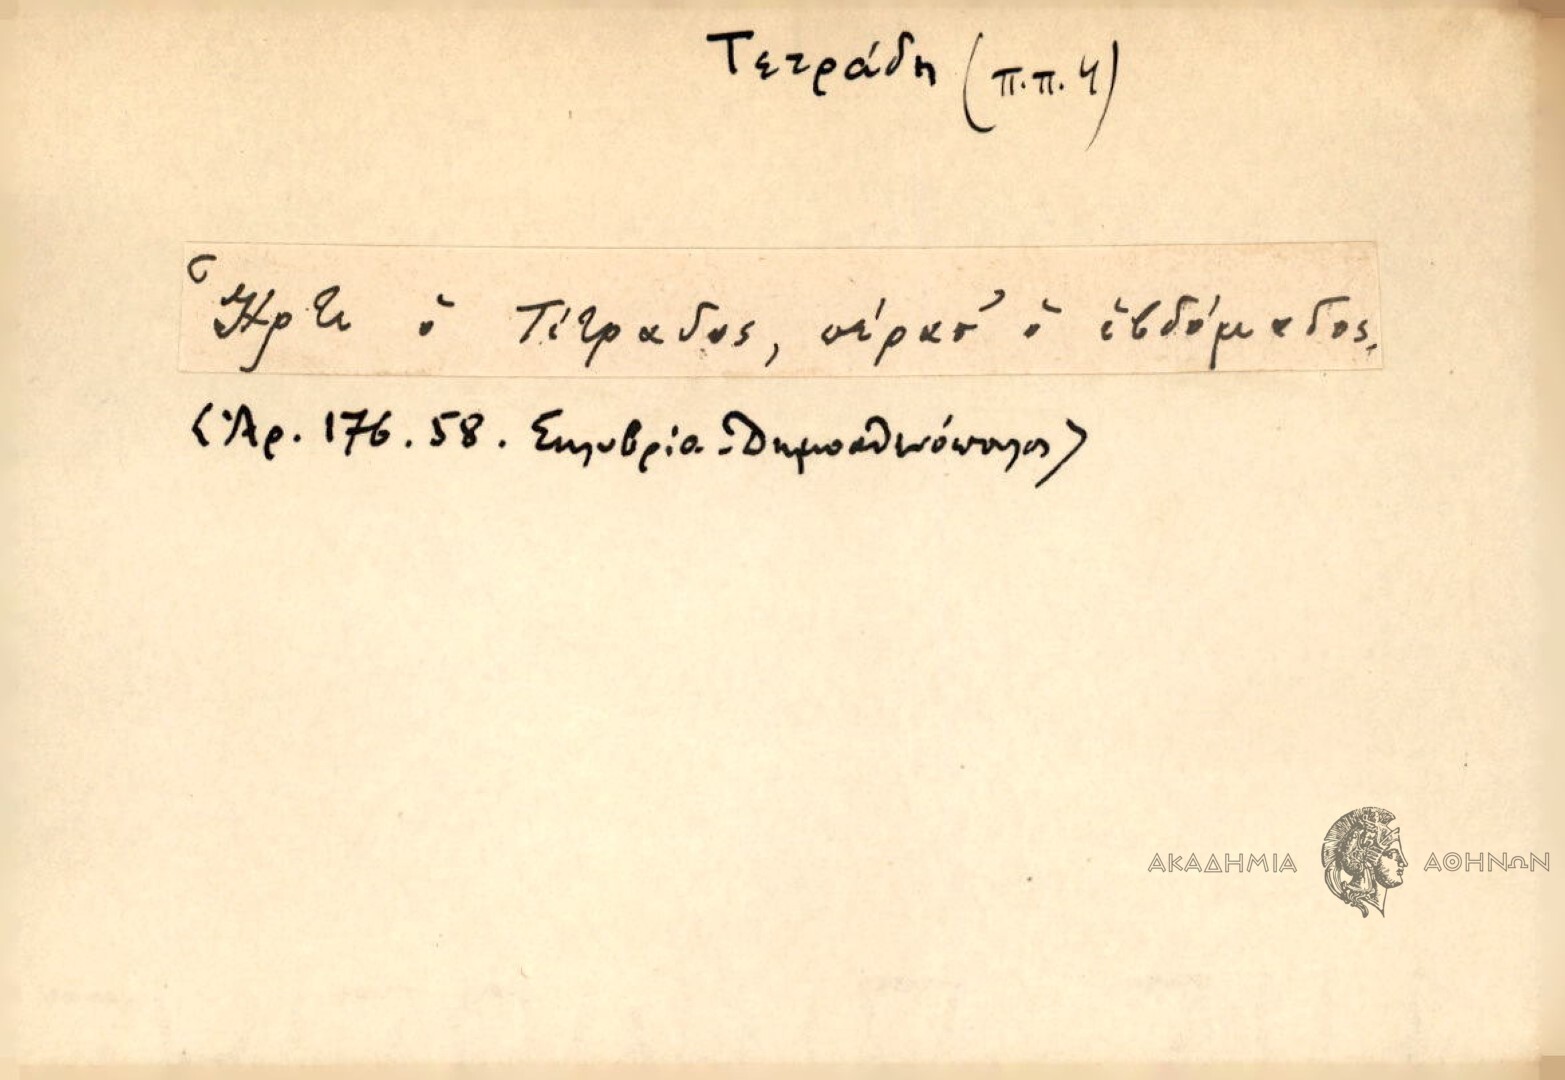 Τετράδη (π.π. 4)
Ἦρτε ὁ Τέτραδος, πέρασ' ὁ ἑβδόμαδος.
(Ἀρ. 176. 58. Σηλυβρία - Δημοσθενόπουλος)
ΑΚΑΔΗΜΙΑ ΑΘΗΝΩΝ